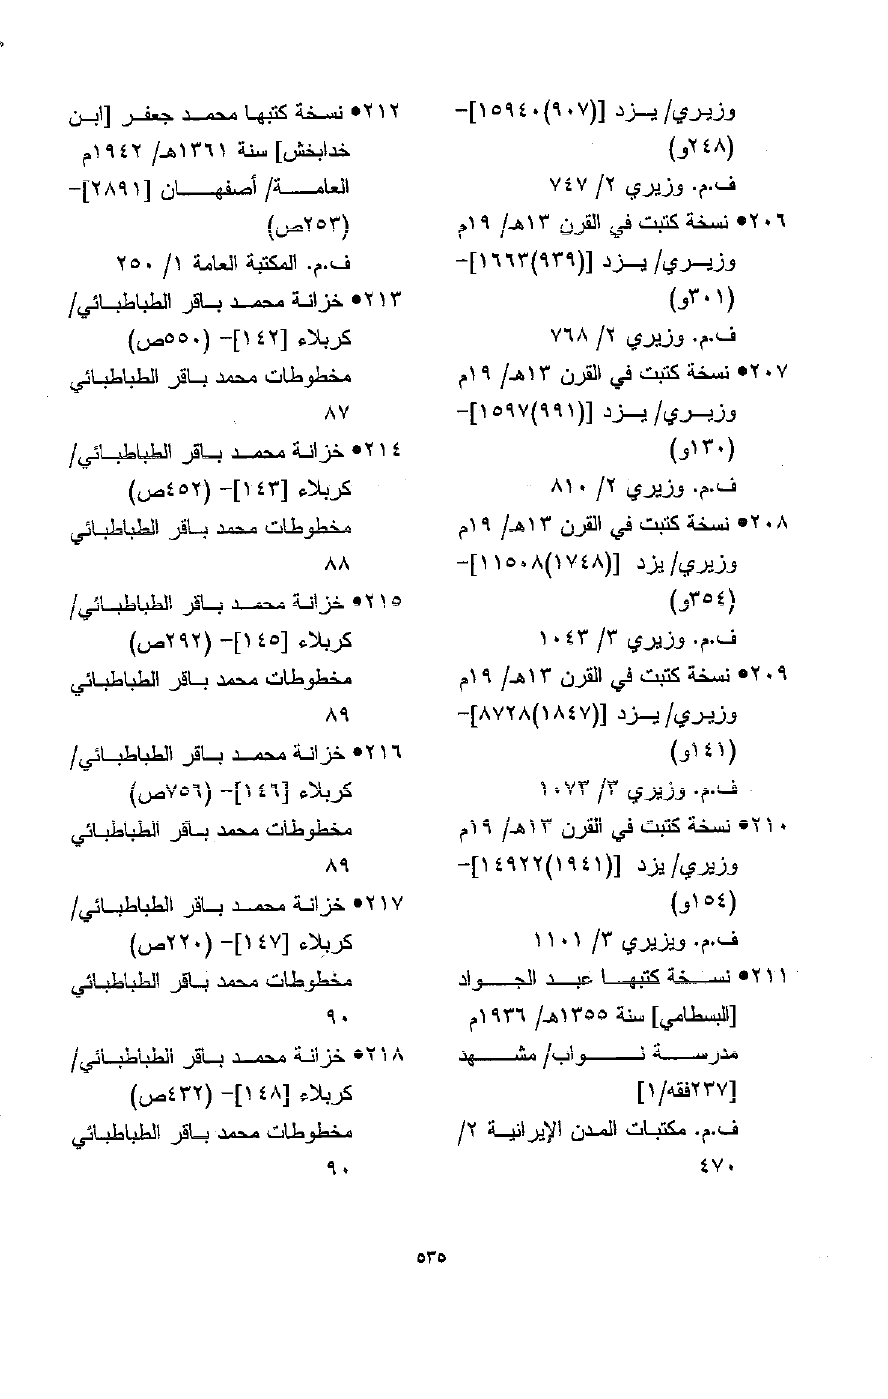 وزيري/ يـزد [(٩٠٧)١٥٩٤٠]-
(٢٤٨و)
ف.م. وزيري ٢/ ٧٤٧
•٢٠٦ نسخة كتبت في القرن ١٣هـ/ ١٩م
وزيـري/ يـزد [(٩٣٩)١٦٦٣]-
(٣٠١و)
ف.م. وزيري ٢/ ٧٦٨
•٢٠٧ نسخة كتبت في القرن ١٣هـ/ ١٩م
وزيـري/ يـزد [(٩٩١)١٥٩٧]-
(١٣٠و)
ف.م. وزيري ٢/ ٨١٠
•٢٠٨ نسخة كتبت في القرن ١٣هـ/ ١٩م
وزيري/ يزد [(١٧٤٨)١١٥٠٨]-
(٣٥٤و)
ف.م. وزيري ٣/ ١٠٤٣
•٢٠٩ نسخة كتبت في القرن ١٣هـ/ ١٩م
وزيري/ يـزد [(١٨٤٧)٨٧٢٨]-
(١٤١و)
ف.م. وزيري ٣/ ١٠٧٣
•٢١٠ نسخة كتبت في القرن ١٣هـ/ ١٩م
وزيري/ يزد [(١٩٤١)١٤٩٢٢]-
(١٥٤و)
ف.م. ويزيري ٣/ ١١٠١
•٢١١ نسـخة كتبهـا عبـد الجـواد
[البسطامي] سنة ١٣٥٥هـ/ ١٩٣٦م
مدرسـة نـواب/ مشـهد
[٢٣٧فقه/١]
ف.م. مكتبات المدن الإيرانية ٢/
٤٧٠
•٢١٢ نسخة كتبها محمـد جعفـر [ابـن
خدابخش] سنة ١٣٦١هـ/ ١٩٤٢م
العامـة/ أصفهـان [٢٨٩١]-
(٢٥٣ص)
ف.م. المكتبة العامة ١/ ٢٥٠
•٢١٣ خزانـة محمـد بـاقر الطباطبـائي/
كربلاء [١٤٢]- (٥٥٠ص)
مخطوطات محمد بـاقر الطباطبـائي
٨٧
•٢١٤ خزانـة محمـد بـاقر الطباطبـائي/
كربلاء [١٤٣]- (٤٥٢ص)
مخطوطات محمد بـاقر الطباطبـائي
٨٨
•٢١٥ خزانـة محمـد بـاقر الطباطبـائي/
كربلاء [١٤٥]- (٢٩٢ص)
مخطوطات محمد بـاقر الطباطبـائي
٨٩
•٢١٦ خزانـة محمـد بـاقر الطباطبـائي/
كربلاء [١٤٦]- (٧٥٦ص)
مخطوطات محمد بـاقر الطباطبـائي
٨٩
•٢١٧ خزانـة محمـد بـاقر الطباطبـائي/
كربلاء [١٤٧]- (٢٢٠ص)
مخطوطات محمد بـاقر الطباطبـائي
٩٠
•٢١٨ خزانـة محمـد بـاقر الطباطبـائي/
كربلاء [١٤٨]- (٤٣٢ص)
مخطوطات محمد بـاقر الطباطبـائي
٩٠
٥٣٥